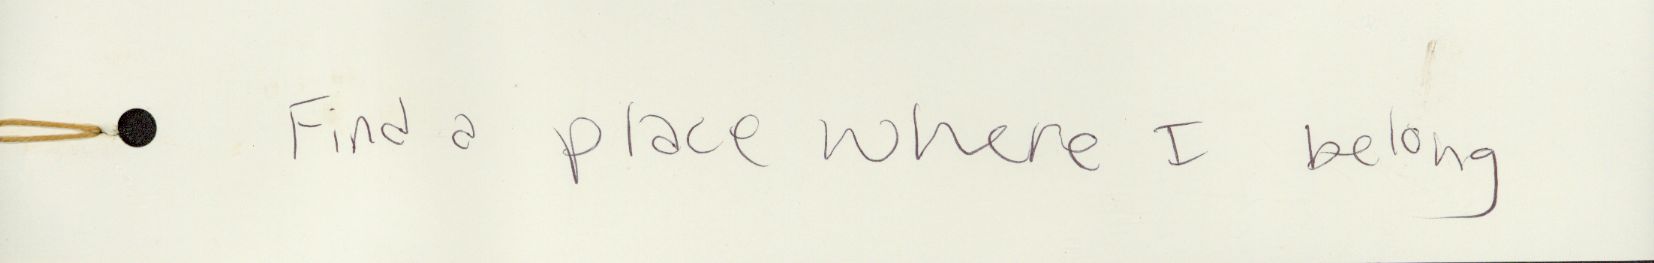 Find a place where I belong